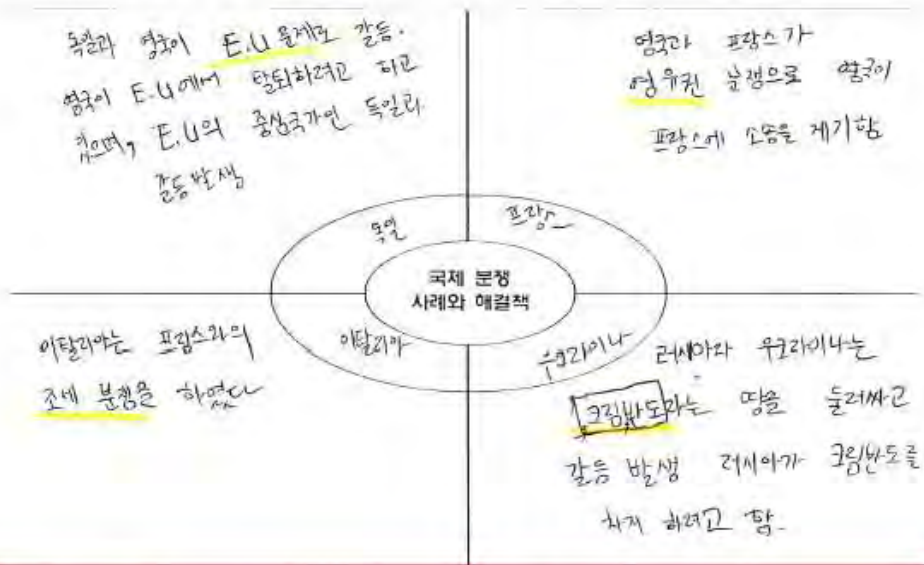 독일과 영국이 E.U 문제로 갈등.
영국이 E.U에서 탈퇴하려고 하고
있으며, E.U의 중심국가인 독일과
갈등 발생
영국과 프랑스가
영유권 분쟁으로 영국이
프랑스에 소송을 제기함
독일
프랑스
국제 분쟁
사례와 해결책
이탈리아
우크라이나
이탈리아는 프랑스와의
조세 분쟁을 하였다
러시아와 우크라이나는
크림반도라는 땅을 둘러싸고
갈등 발생 러시아가 크림반도를
차지 하려고 함.